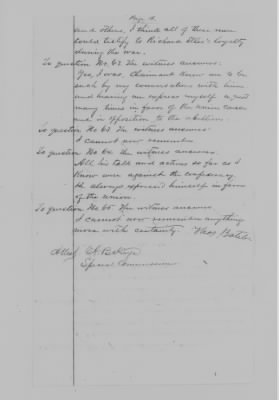 Page 4.
and others, I think all of these men
could testify to Richard Otis's loyalty
during the war.
To question No. 62 the witness answers:
Yes, I was. Claimant knew me to be
such by my conversations with him
and hearing me express myself a good
many times in favor of the union cause
and in opposition to the rebellion.
To question No. 63 the witness answers
I cannot now remember
To question No. 64 the witness answers.
All his talk and actions so far as I
know were against the confederacy.
He always expressed himself in favor
of the union.
To question No. 65 the witness answers
I cannot now remember anything
more with certainty.
Attest
Special Commissioner